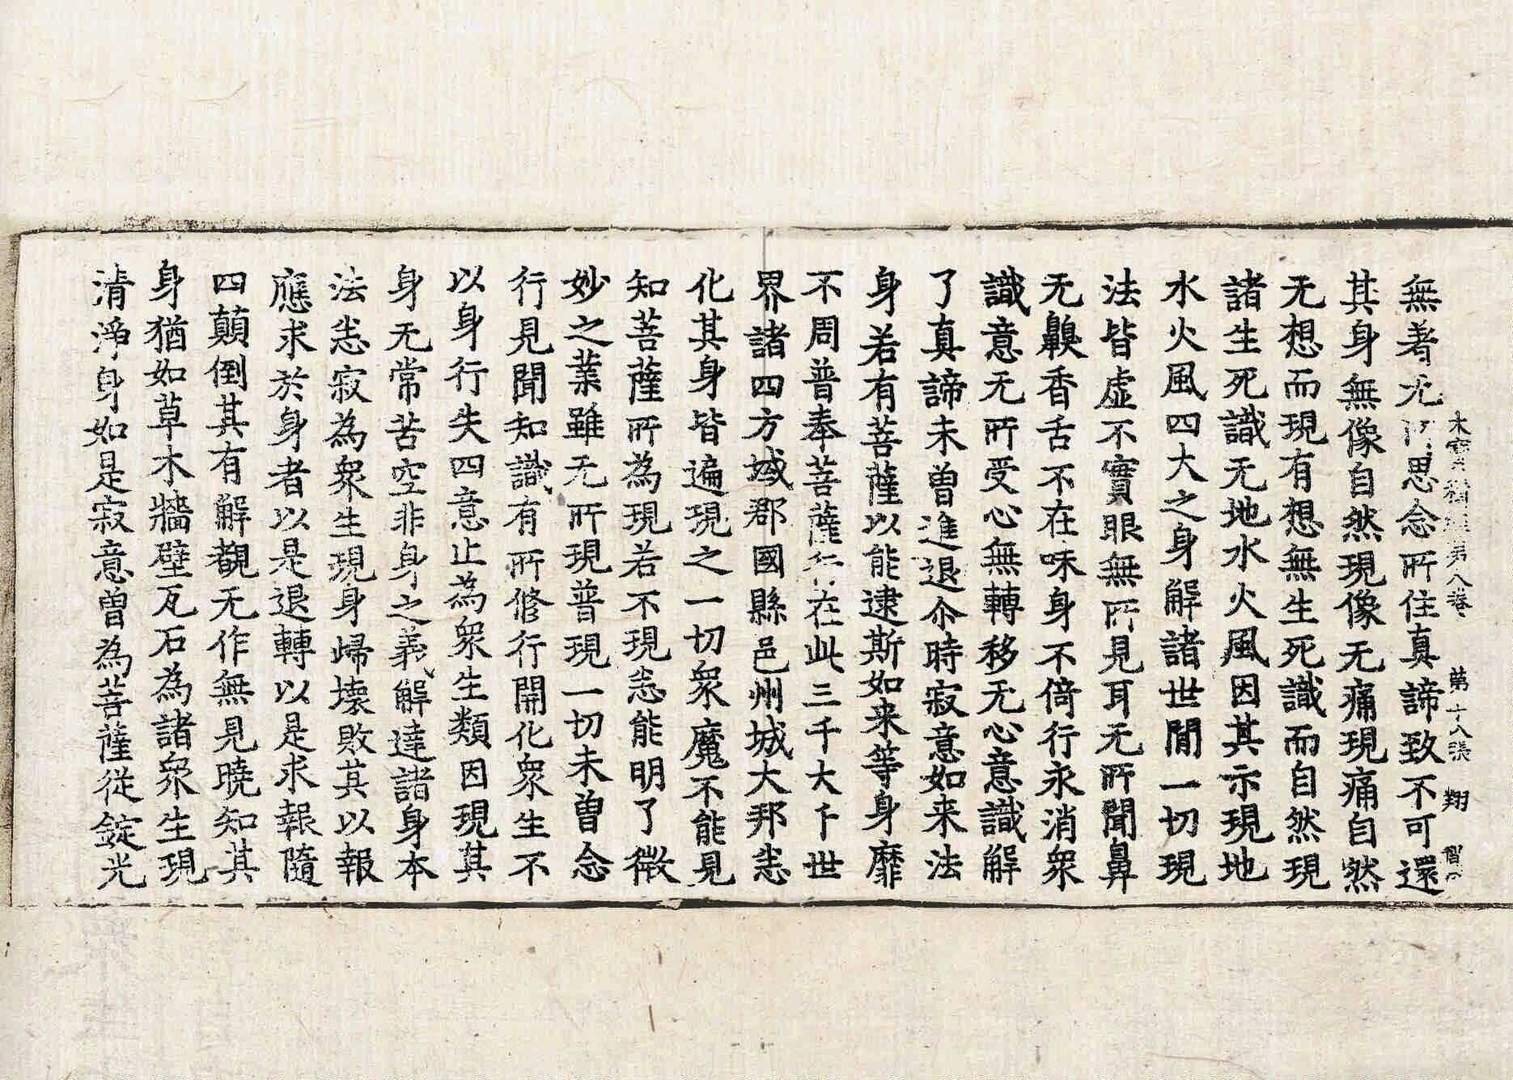 大寶積經第八卷 第十八張 翔
無著无所思念所住真諦致不可還
其身無像自然現像无痛現痛自然
无想而現有想無生死識而自然現
諸生死識无地水火風因其示現地
水火風四大之身解諸世閒一切現
法皆虛不實眼無所見耳无所聞鼻
无齅香舌不在味身不倚行永消衆
識意无所受心無轉移无心意識解
了真諦未曽進退尒時寂意如来法
身若有菩薩以能逮斯如来等身靡
不周普奉菩薩行在此三千大千世
界諸四方域郡國縣邑州城大邦悉
化其身皆遍現之一切衆魔不能見
知菩薩所為現若不現悉能明了微
妙之業雖无所現普現一切未曽念
行見聞知識有所脩行開化衆生不
以身行失四意止為衆生類因現其
身无常苦空非身之義解達諸身本
法悉寂為衆生現身歸壊敗其以報
應求於身者以是退轉以是求報隨
四顛倒其有解觀无作無見曉知其
身猶如草木牆壁瓦石為諸衆生現
清淨身如是寂意曽為菩薩從錠光